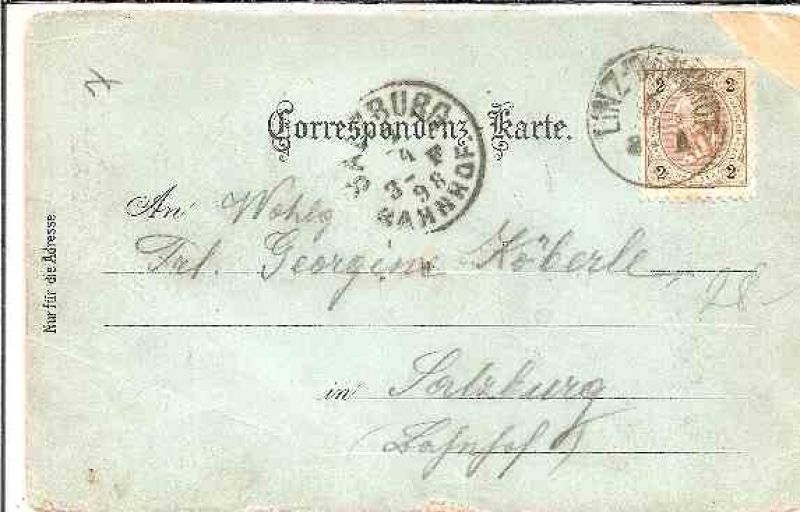 Correspondenz-Karte.
SALZBURG
4
3-F
98
BAHNHOF
LINZ
2 2
2 2
An Wohlg
Frl. Georgine Köberle
in Salzburg
(Bahnhof)
Nur für die Adresse